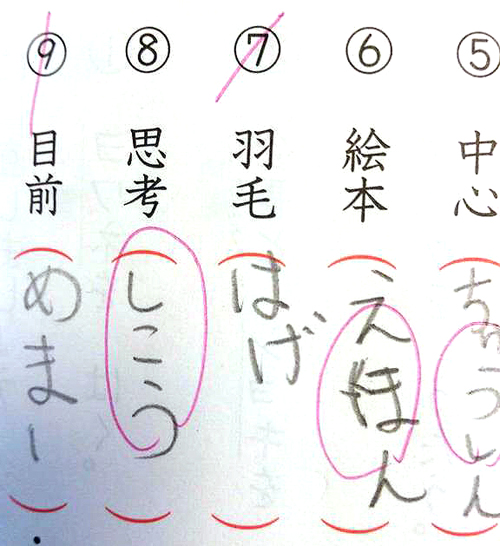 ⑤ 中心 (ちゅうしん)
⑥ 絵本 (えほん)
⑦ 羽毛 (はげ)
⑧ 思考 (しこう)
⑨ 目前 (めまー)